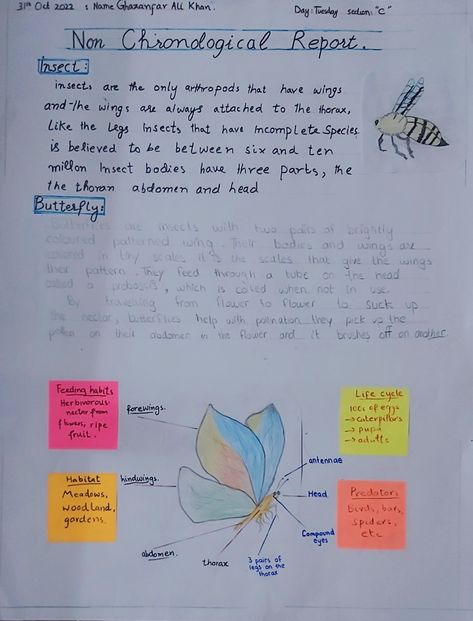 31st Oct 2022 : Name Ghazanfar Ali Khan.
Day: Tuesday section: "C"
Non Chronological Report.
Insect:
insects are the only arthropods that have wings
and the wings are always attached to the thorax,
Like the Legs insects that have incomplete Species
is believed to be between six and ten
million Insect bodies have three parts, the
the thoran abdomen and head
Butterfly:
Butterflies are insects with two pairs of brightly
coloured patterned wing. Their bodies and wings are
covered in tiny scales it is the scales that give the wings
their pattern. They feed through a tube on the head
called a proboscis, which is coiled when not in use.
By travelling from flower to flower to suck up
the nectar, butterflies help with pollination they pick up the
pollen on their abdomen in the flower and it brushes off on another.
Feeding habits
Herbivorous:
nectar from
flowers, ripe
fruit.
forewings.
Life cycle
100s of eggs
→ caterpillars
→ pupa
→ adults
antennae
Habitat
Meadows,
woodland,
gardens.
hindwings.
Head
Predators
birds, bats,
spiders,
etc
Compound
eyes
abdomen.
thorax
3 pairs of
legs on the
thorax